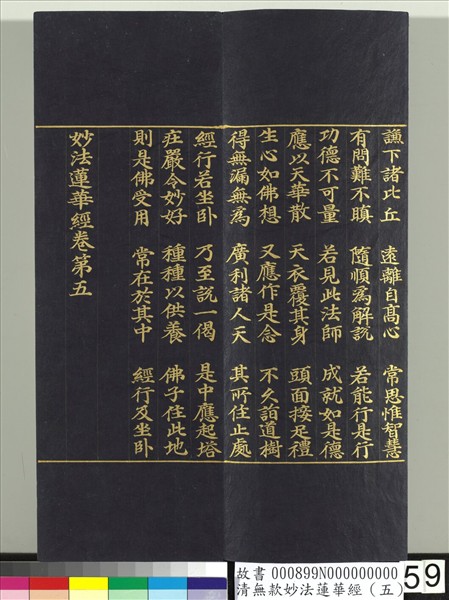 謙下諸比丘 遠離自髙心 常思惟智慧
有問難不瞋 隨順為解說 若能行是行
功德不可量 若見此法師 成就如是德
應以天華散 天衣覆其身 頭面接足禮
生心如佛想 又應作是念 不久詣道樹
得無漏無為 廣利諸人天 其所住止處
經行若坐卧 乃至說一偈 是中應起塔
莊嚴令妙好 種種以供養 佛子住此地
則是佛受用 常在於其中 經行及坐卧
妙法蓮華經卷第五
故書 000899N000000000
清無款妙法蓮華經（五）
59